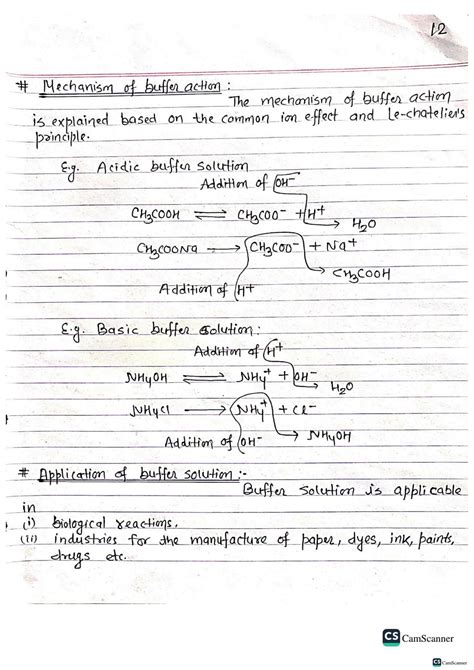 12
# Mechanism of buffer action :
The mechanism of buffer action
is explained based on the common ion effect and Le-chatelier's
principle.
E.g. Acidic buffer solution
Addition of OH⁻
CH₃COOH ⇌ CH₃COO⁻ + H⁺
→ H₂O
CH₃COONa → CH₃COO⁻ + Na⁺
→ CH₃COOH
Addition of H⁺
E.g. Basic buffer solution:
Addition of H⁺
NH₄OH ⇌ NH₄⁺ + OH⁻
→ H₂O
NH₄Cl → NH₄⁺ + Cl⁻
→ NH₄OH
Addition of OH⁻
# Application of buffer solution :-
Buffer solution is applicable
in
(i) biological reactions.
(ii) industries for the manufacture of paper, dyes, ink, paints,
drugs etc.
CS CamScanner
CS CamScanner